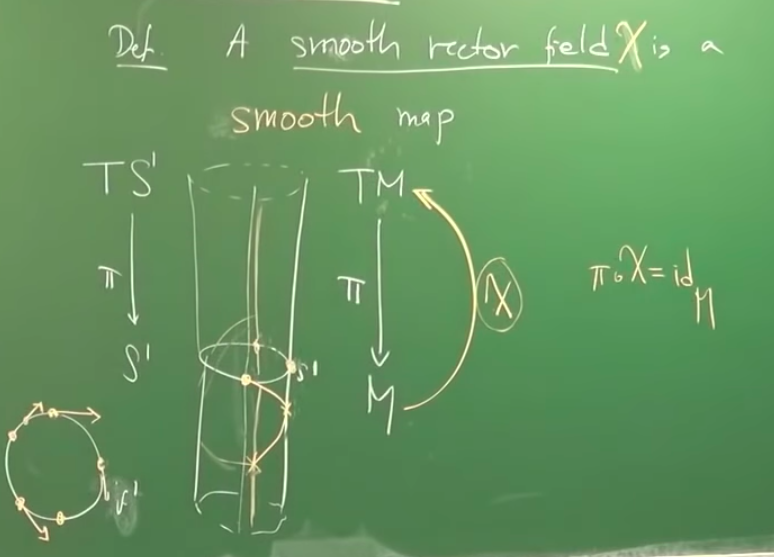 Def. A smooth vector field X is a
smooth map
TS¹
π
S¹
S¹
TM
π
M
X
π∘X = id_M